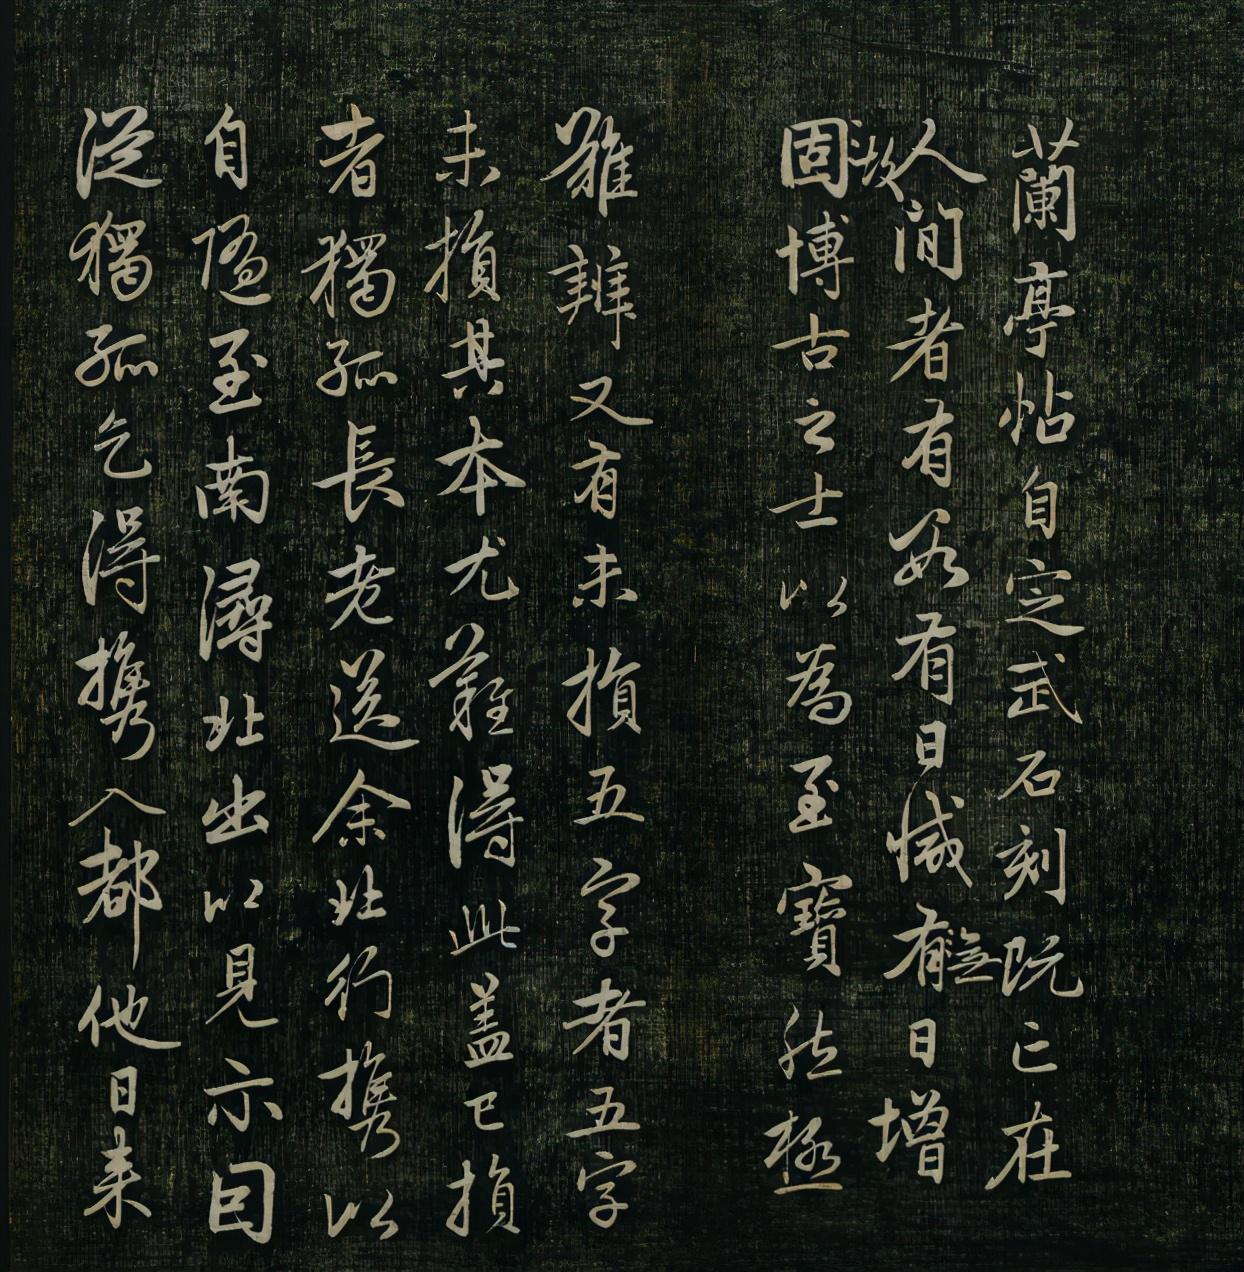 蘭亭帖自定武石刻既亡在
人間者有數有日減有無日增
固故博古之士以為至寶然極
難辨又有未損五字者五字
未損其本尤難得此盖已損
者獨孤長老送余北行携以
自隨至南潯北出以見示因
從獨孤乞得携入都他日来